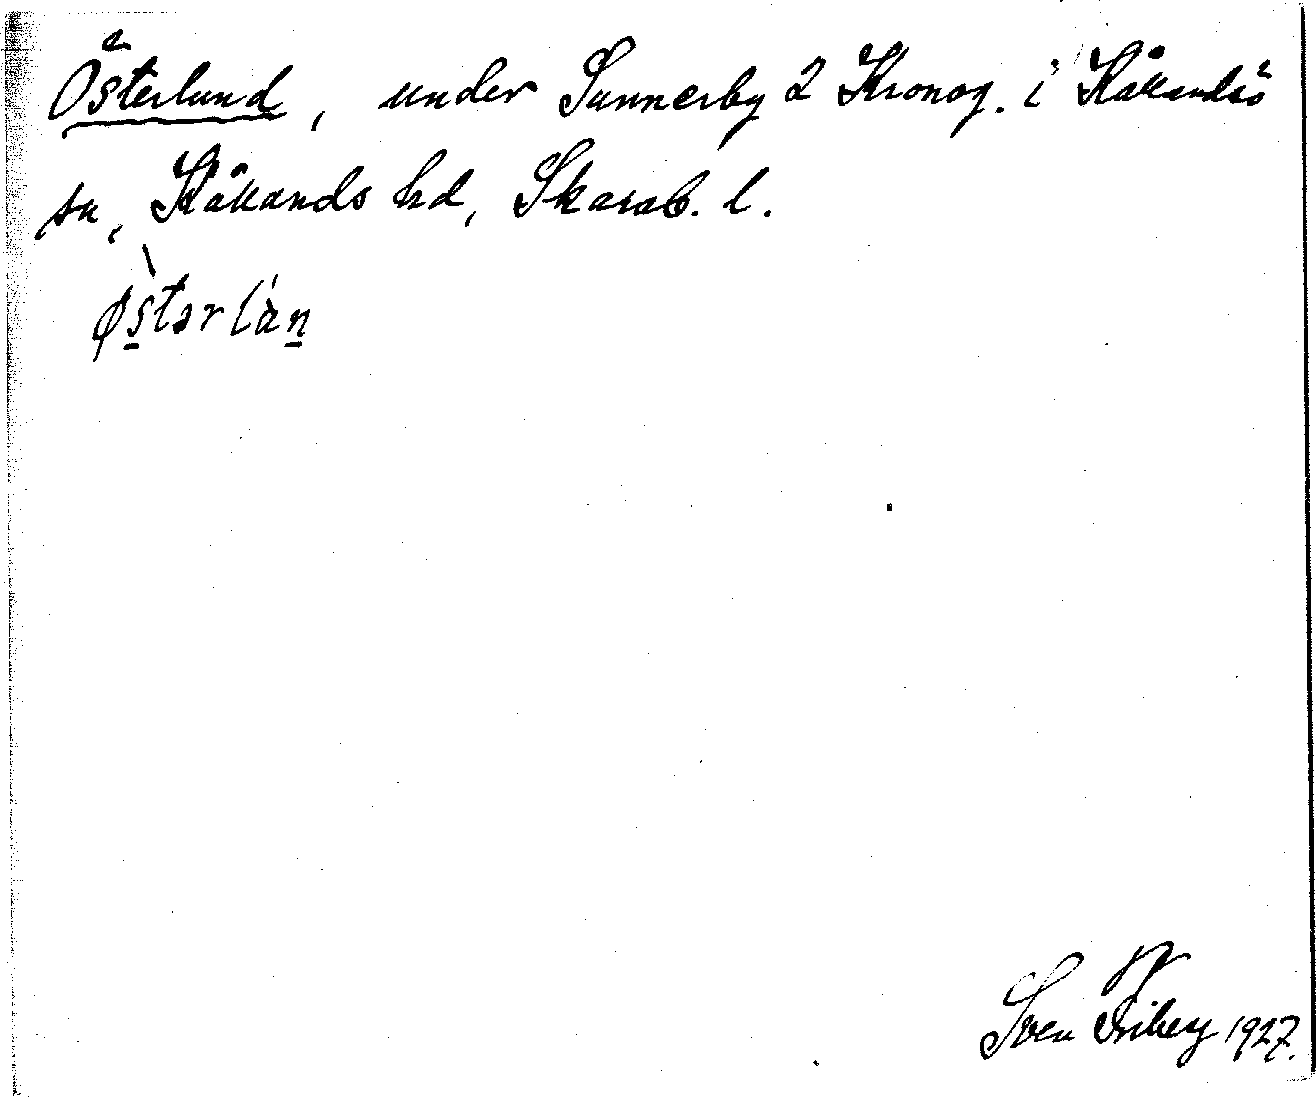 Österlund, under Sunnerby 2 Kronog. i Kållandsö
sn, Kållands hd, Skarab. l.
østərlàn
Sven Friberg 1927.